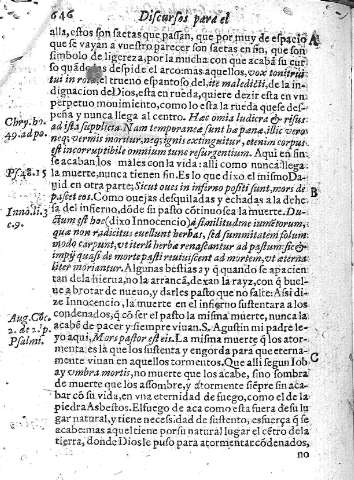 646 Discursos para el
alla, estos son saetas que passan, que por muy de espacio A
que se vayan a vuestro parecer son saetas en fin, que son
simbolo de ligereza, por la mucha con que acaba su cur
so quãdo las despide el arco: mas aquellos, vox tonitrui
tui in rota, el trueno espantoso del, ite maledicti, de la in-
dignacion de Dios, esta en rueda, quiere dezir esta en vn
perpetuo mouimiento, como lo esta la rueda que se des-
peña y nunca llega al centro. Hæc omnia ludicra & risus
Chry. ho. ad ista supplicia. Nam temporanea sunt hæc pœnæ, illic vero
49. ad po. neq; vermis moritur, neq; ignis extinguitur, etenim corpus
est incorruptibile omnium tunc resurgentium. Aqui en fin
se acaban los males con la vida: alli como nunca llega
Ps. 48. 15 la muerte, nunca tienen fin. Es lo que dixo el mismo Da
uid en otra parte, Sicut oues in inferno positi sunt, mors de B
pascet eos. Como ovejas desquiladas y echadas a la dehe
Inno. li. 3 sa del infierno, dõde su pasto cõtinuo sea la muerte. Du-
c. 9. ctum est hoc (dixo Innocencio) à similitudine iumẽtorum,
quæ non radicitus euellunt herbas, sed summitatem solum
modo carpunt, vt iterũ herbæ renascantur ad pastum: sic &
impij quasi de morte pasti reuiuiscent ad mortem, vt æterna
liter moriantur. Algunas bestias ay q̃ quando se apacien
tan de la hierua, no la arrancã, dexan la rayz, con q̃ buel-
ue a brotar de nuevo, y darles pasto que no falte: Assi di-
ze Innocencio, la muerte en el infierno sustentara a los
condenados, q̃ cõ ser el pasto la misma muerte, nunca la
Aug. Cõc. acabã de pacer y siempre viuan. S. Agustin mi padre le-
2. de 2. p. yo aqui, Mors pastor est eis. La misma muerte q̃ los ator-
Psalmi. menta: es la que los sustenta y engorda para que eterna-
mente viuan en aquellos tormentos. Que alli segun Iob C
ay vmbra mortis, no muerte que los acabe, sino sombra
de muerte que los assombre, y atormente siẽpre sin aca
bar cõ su vida, en vna eternidad de fuego, como el de la
piedra Asbestos. El fuego de aca como esta fuera de su lu
gar natural, y tiene necessidad de sustento, es fuerça q̃ se
acabe: mas aquel tiene por su natural lugar el cẽtro de la
tierra, donde Dios le puso para atormentar cõdenados,
no